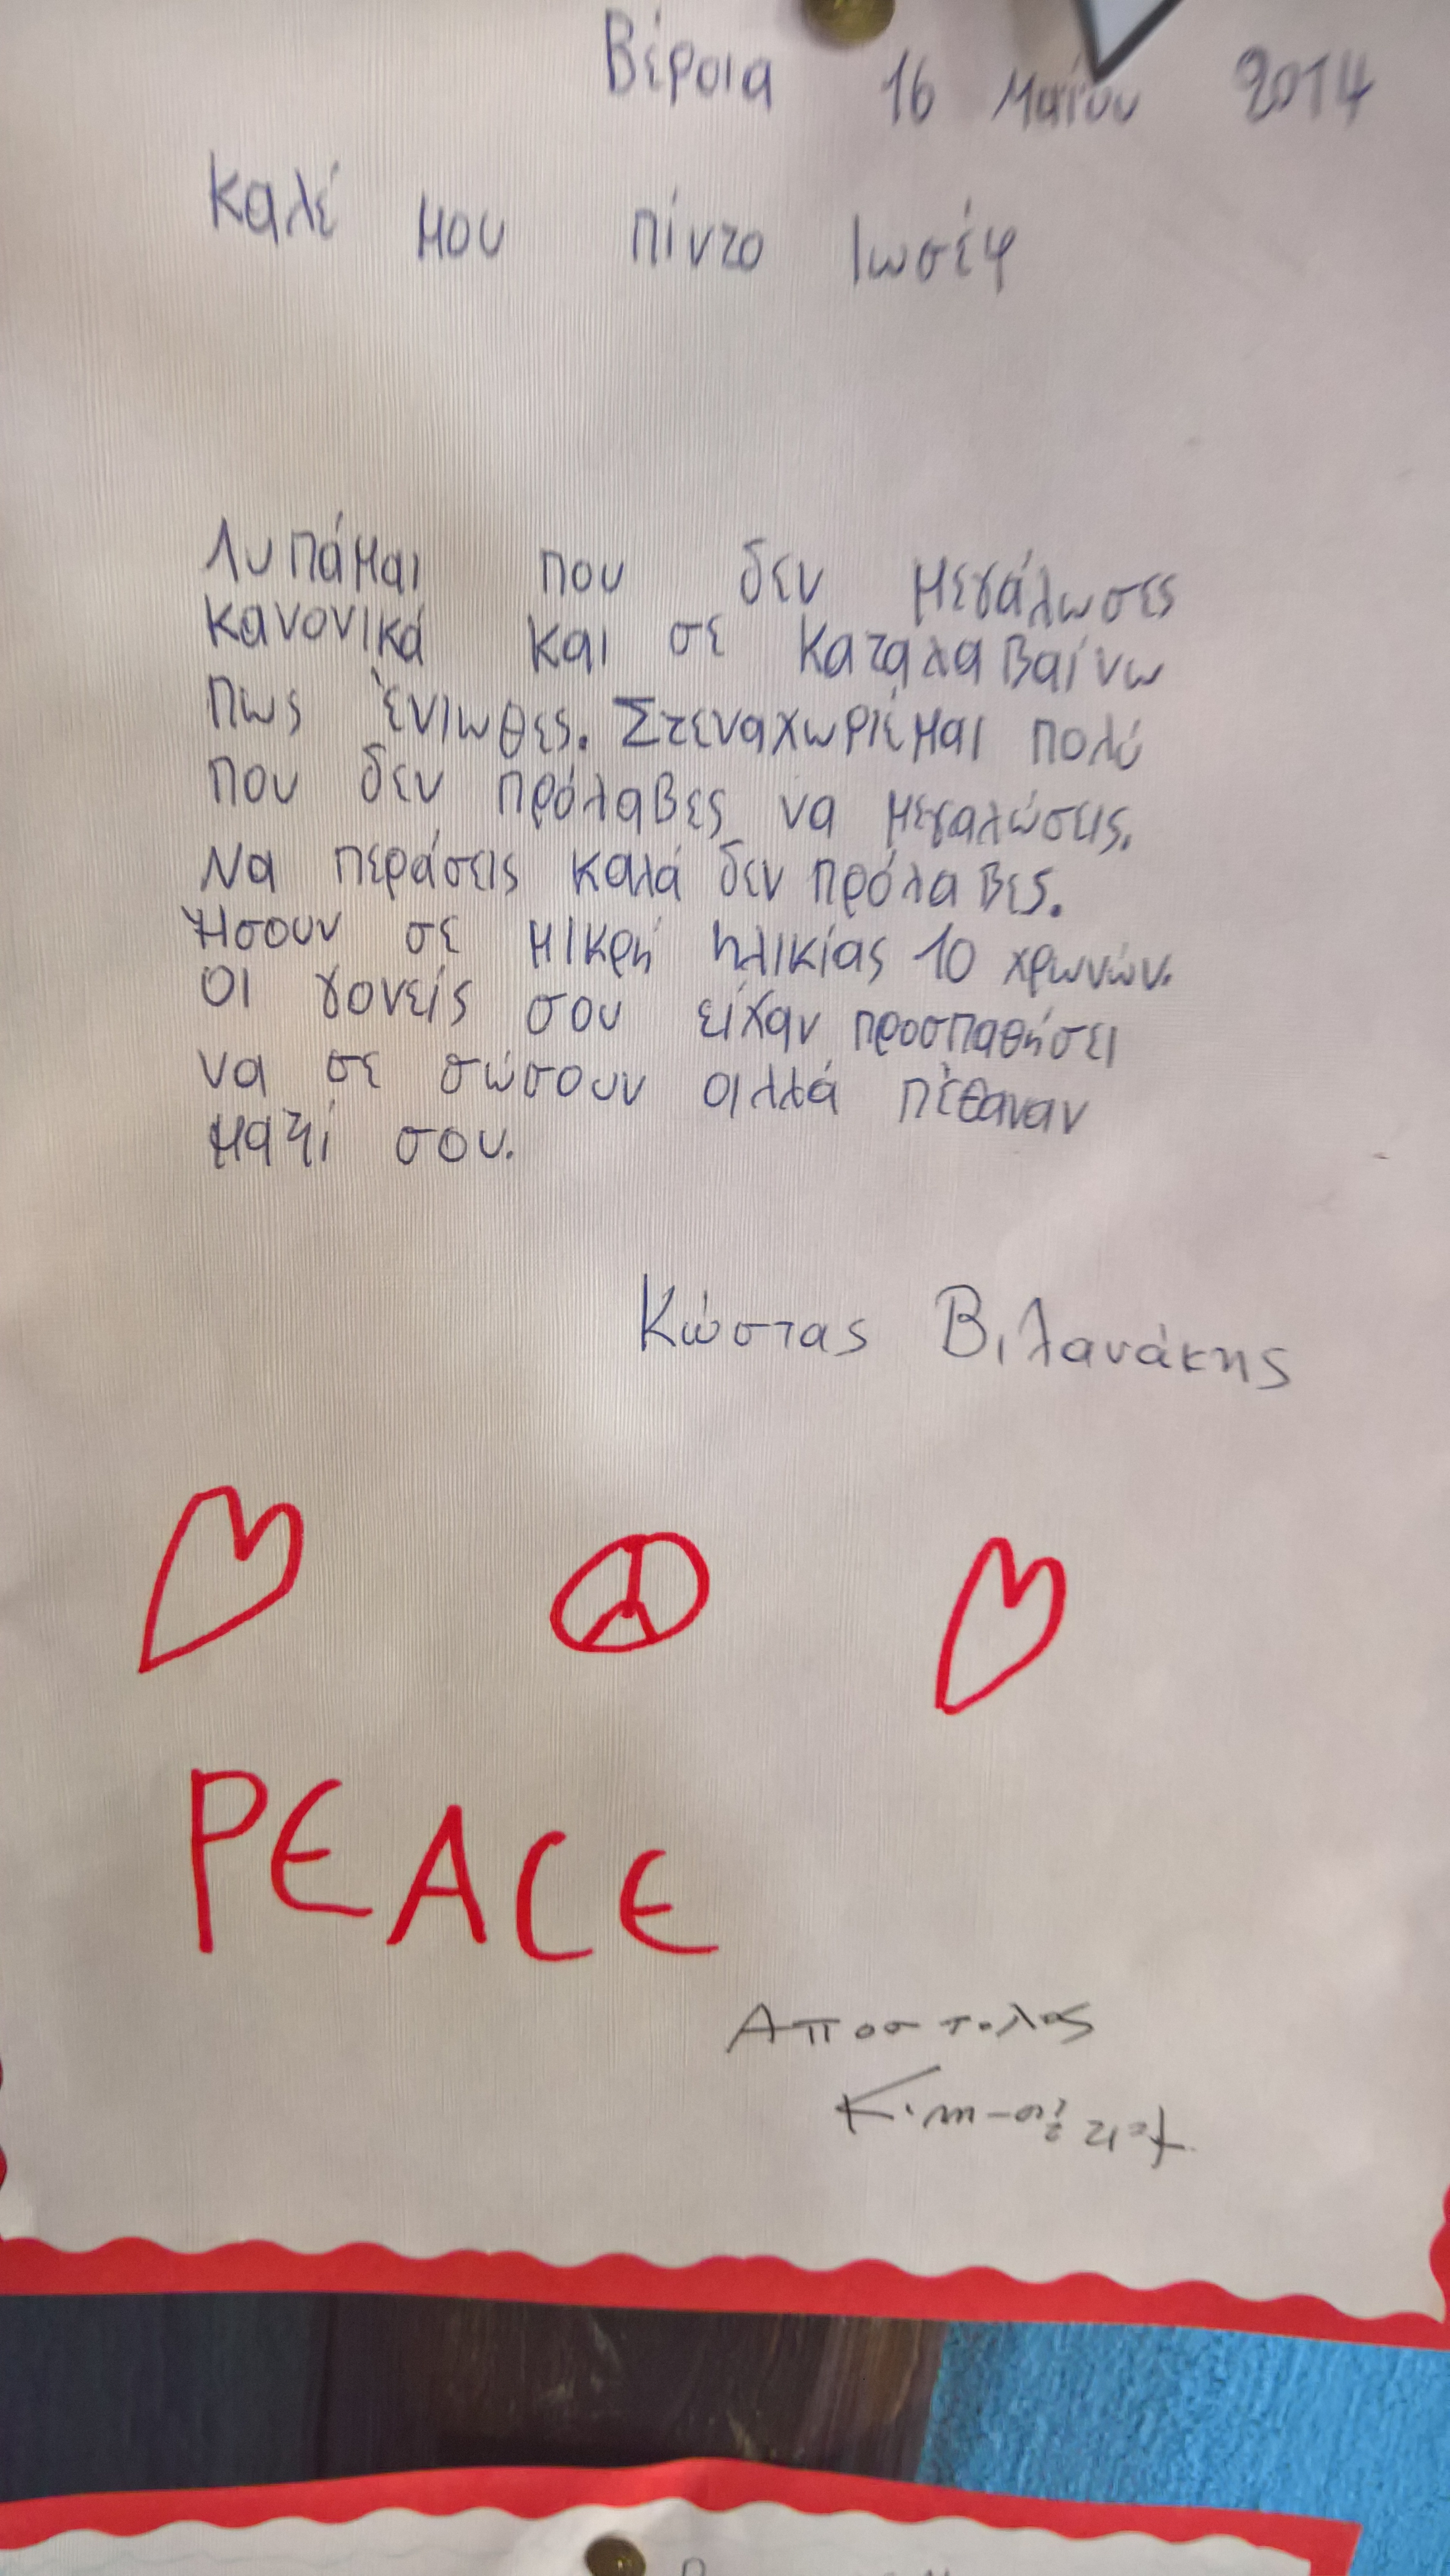 Βέροια 16 Μαΐου 2014
Καλέ μου Πίντο Ιωσέφ
Λυπάμαι που δεν μεγάλωσες
κανονικά και σε καταλαβαίνω
πως ένιωθες. Στεναχωριέμαι πολύ
που δεν πρόλαβες να μεγαλώσεις.
Να περάσεις καλά δεν πρόλαβες.
Ήσουν σε μικρή ηλικίας 10 χρωνών.
Οι γονείς σου είχαν προσπαθήσει
να σε σώσουν αλλά πέθαναν
μαζί σου.
Κώστας Βιλανάκης
PEACE
Αποστολος